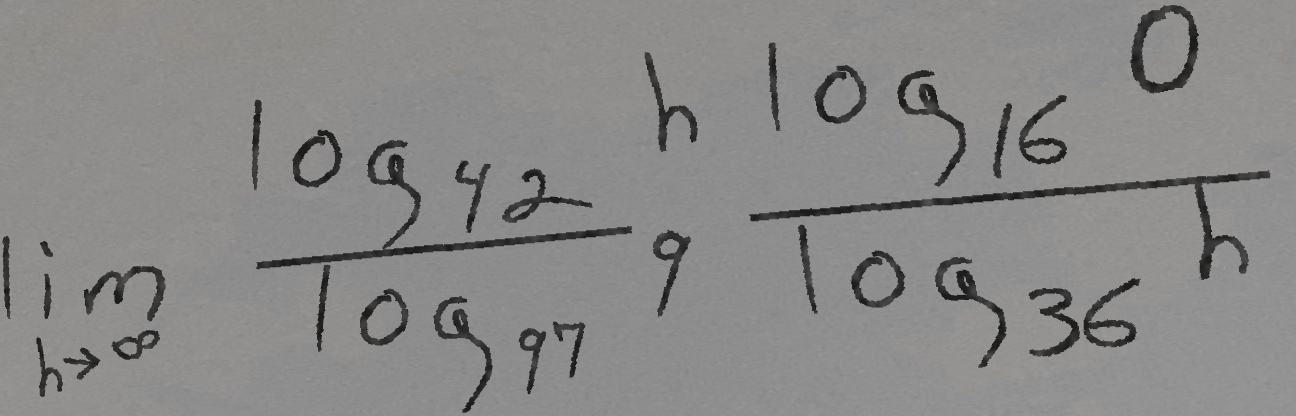 \lim_{h \to \infty} \frac{\log_{42} h}{\log_{97} 9} \frac{\log_{16} 0}{\log_{36} h}